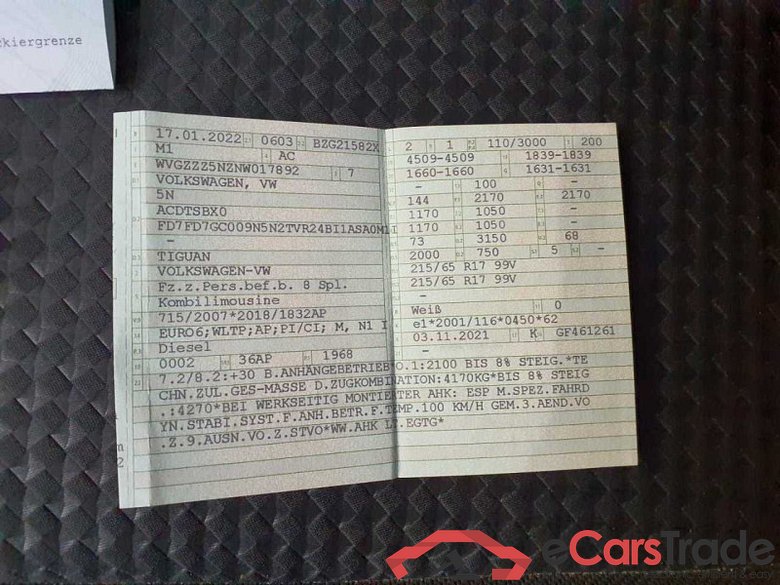 kiergrenze
17.01.2022 0603 BZG21582X
M1 AC
WVGZZZ5NZNW017892 7
VOLKSWAGEN, VW
5N
ACDTSBX0
FD7FD7GC009N5N2TVR24BI1ASA0MLI
–
TIGUAN
VOLKSWAGEN-VW
Fz.z.Pers.bef.b. 8 Spl.
Kombilimousine
715/2007*2018/1832AP
EURO6;WLTP;AP;PI/CI; M, N1 I
Diesel
0002 36AP 1968
2 1 110/3000 200
4509-4509 1839-1839
1660-1660 1631-1631
– 100 –
144 2170 2170
1170 1050 –
1170 1050 –
73 3150 68
2000 750 5 –
215/65 R17 99V
215/65 R17 99V
–
Weiß 0
e1*2001/116*0450*62
03.11.2021 K GF461261
–
7.2/8.2:+30 B.ANHÄNGEBETRIEB*O.1:2100 BIS 8% STEIG.*TE
CHN.ZUL.GES-MASSE D.ZUGKOMBINATION:4170KG*BIS 8% STEIG
.:4270*BEI WERKSEITIG MONTIERTER AHK: ESP M.SPEZ.FAHRD
YN.STABI.SYST.F.ANH.BETR.F.TEMP.100 KM/H GEM.3.AEND.VO
.Z.9.AUSN.VO.Z.STVO*WW.AHK LT.EGTG*
eCarsTrade